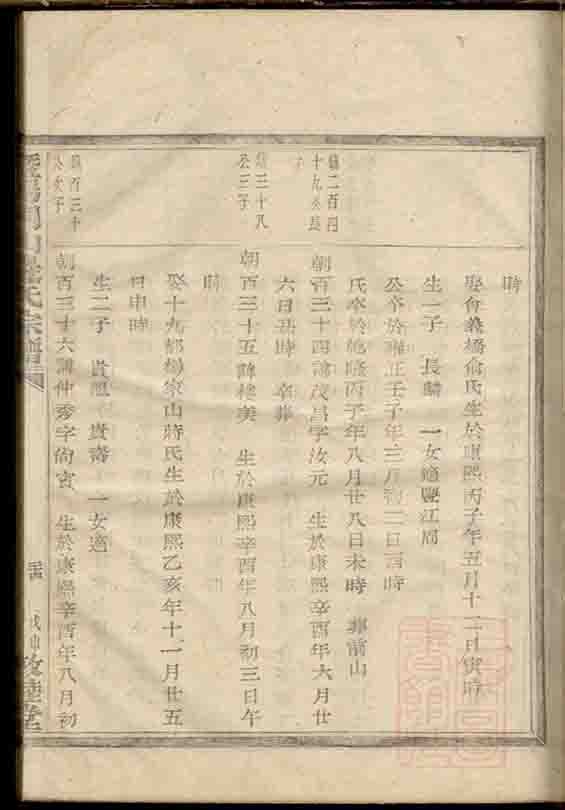 時
娶會義橋俞氏生於康熙丙子年五月十二日寅時
生一子 長麟 一女適鹽江周
公卒於雍正壬子年三月初二日酉時
氏卒於乾隆丙子年八月廿八日未時 葬前山
鎮二百四
十九公長
子
朝百三十四諱茂昌字汝元 生於康熙辛酉年六月廿
六日丑時 卒葬
鎮三十八
公三子
朝百三十五諱 美 生於康熙辛酉年八月初三日午
時
娶十九都楊家山蔣氏生於康熙乙亥年十一月廿五
日申時
生二子 貴 貴 一女適
鎮百三十
公次子
朝百三十六諱仲秀字尚賓 生於康熙辛酉年八月初
氏宗譜
敦睦堂